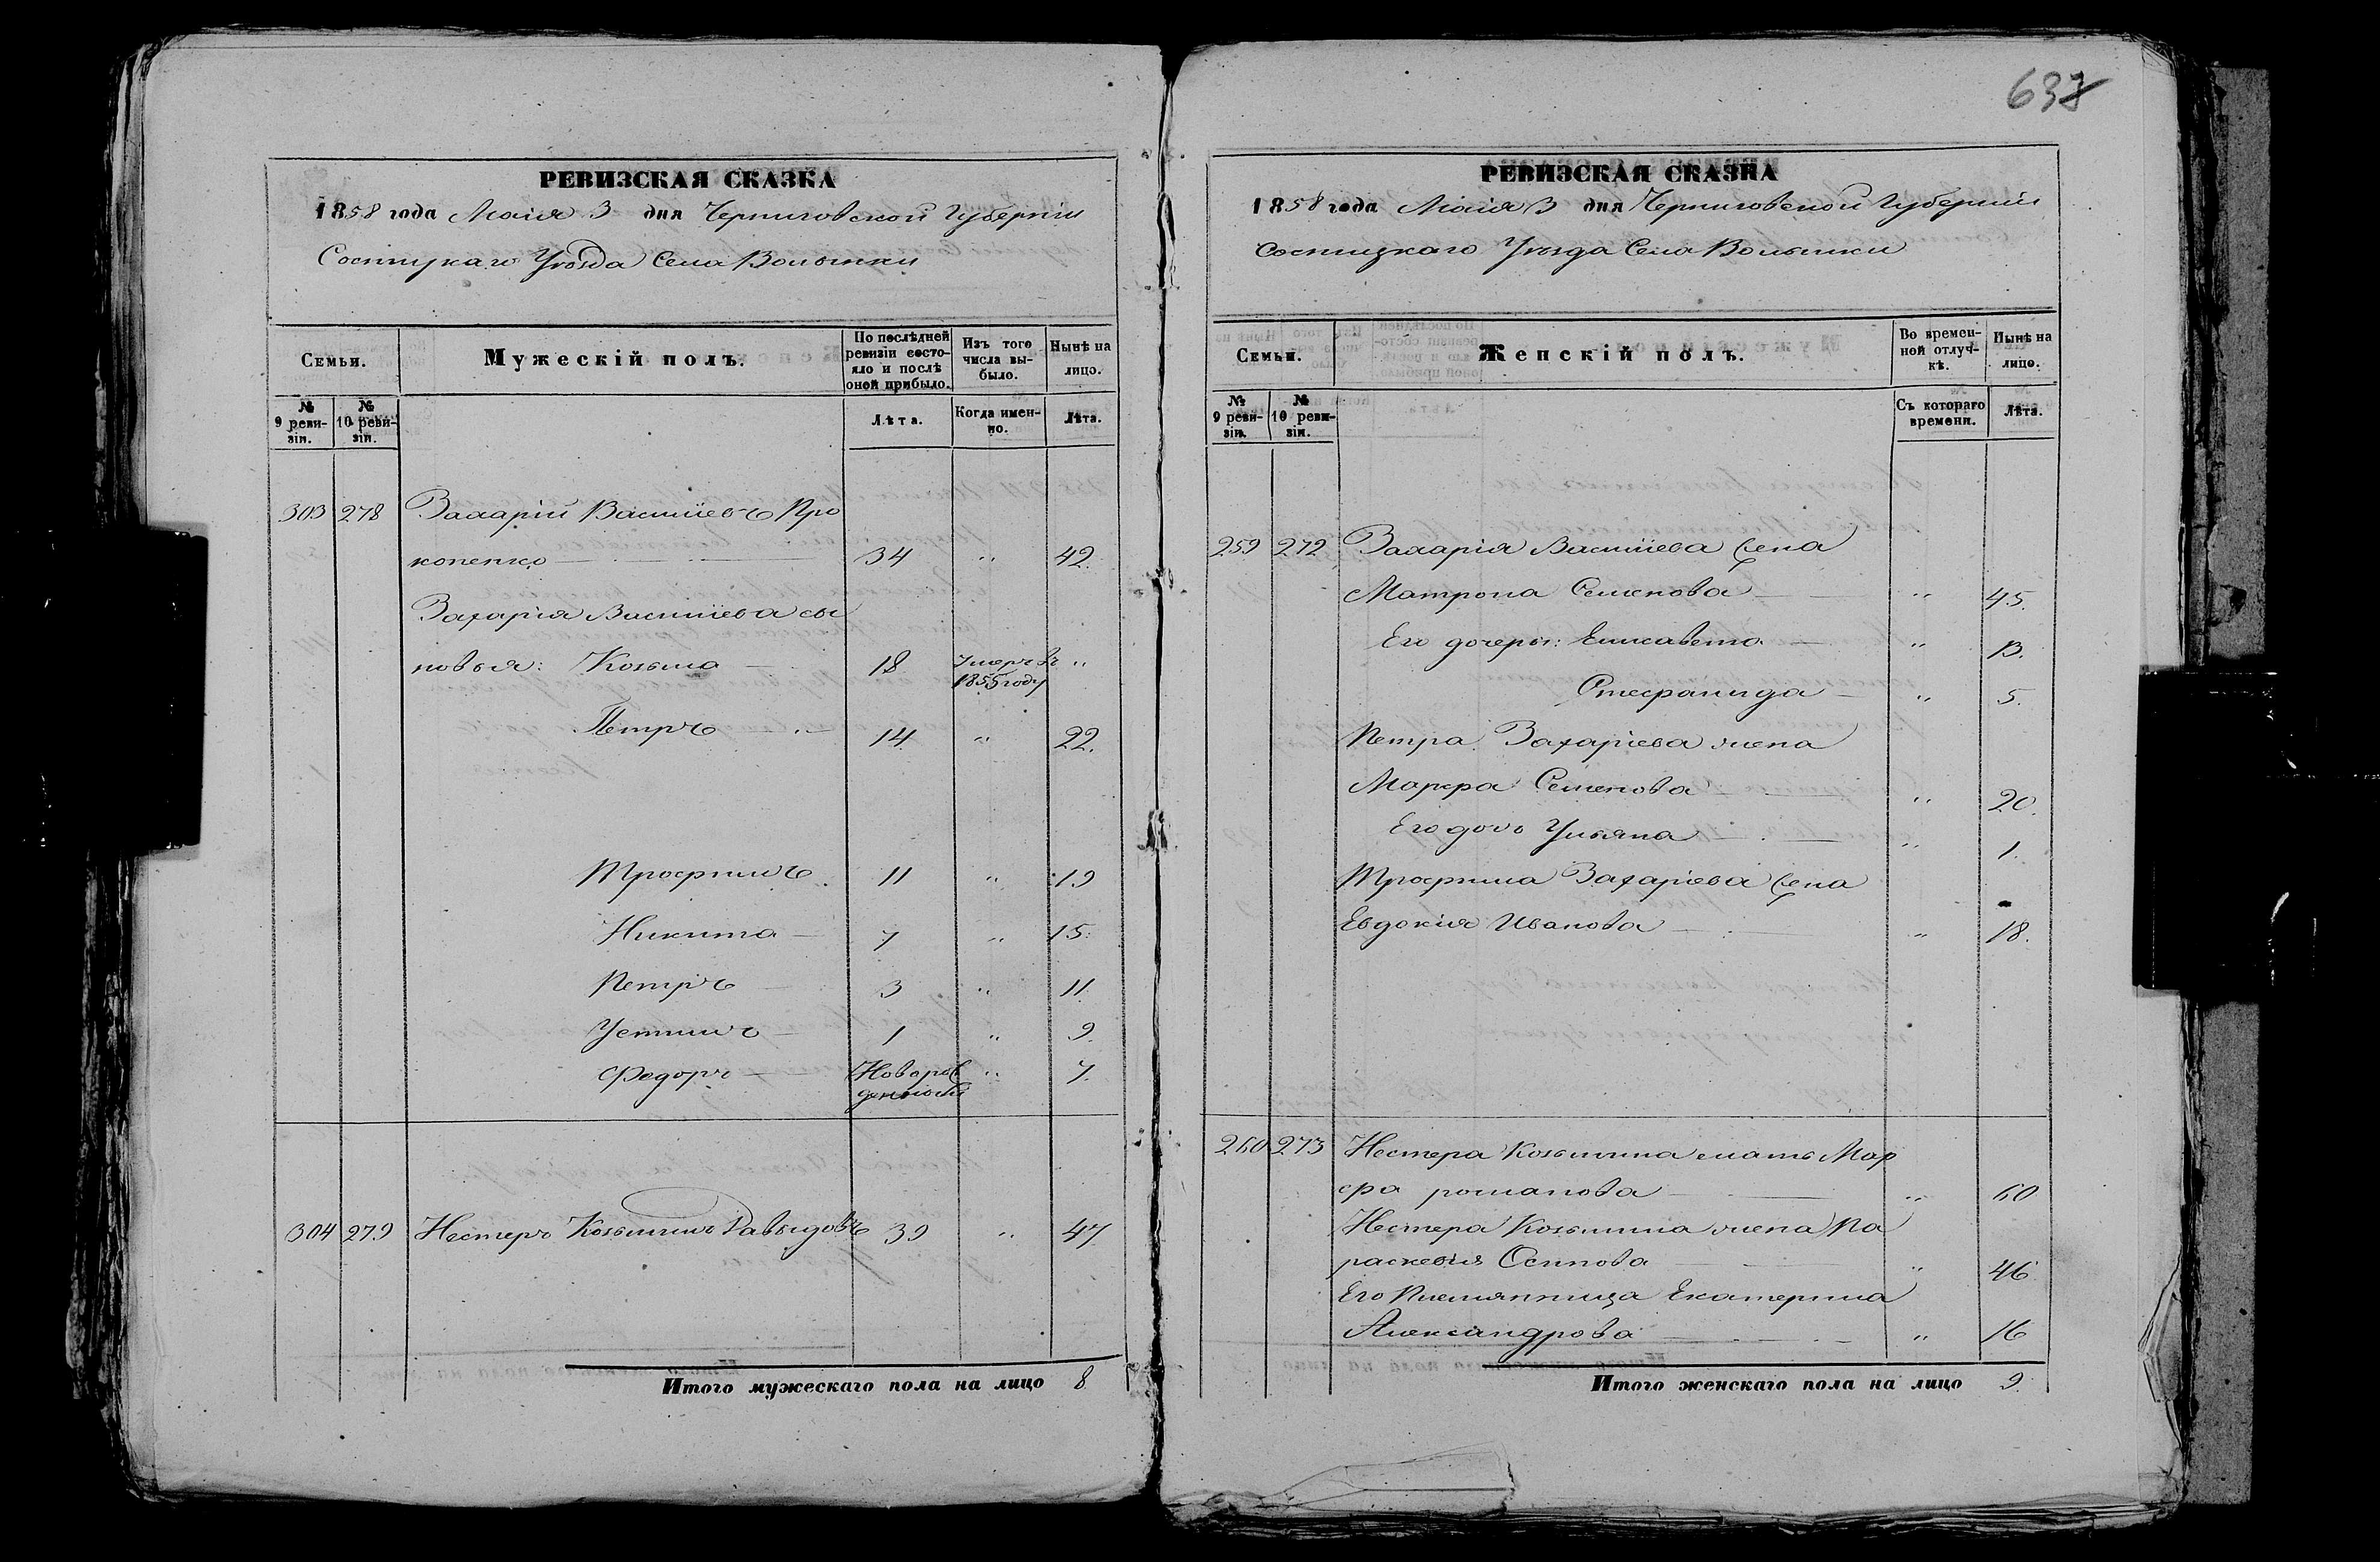 637
РЕВИЗСКАЯ СКАЗКА
1858 года Маія 3 дня Черниговской Губерніи
Сосницкаго Уѣзда Села Волынки
Семьи.
Мужескій полъ.
По послѣдней ревизіи состояло и послѣ оной прибыло.
Изъ того числа выбыло.
Нынѣ на лицо.
№ 9 ревизіи.
№ 10 ревизіи.
Лѣта.
Когда именно.
Лѣта.
303 278 Захарій Васильевъ Про
копенко 34 " 42.
Захарія Васильева сы
новья: Козьма 18 умеръ въ 1855 году "
Петръ 14 " 22.
Трофимъ 11 " 19
Никита 7 " 15.
Петръ 3 " 11.
Устимъ 1 " 9.
Федоръ Новорож денный " 7.
304 279 Нестеръ Козьминъ Давыдовъ 39 " 47
Итого мужескаго пола на лицо 8
РЕВИЗСКАЯ СКАЗКА
1858 года Маія 3 дня Черниговской Губерніи
Сосницкаго Уѣзда Села Волынки
Семьи.
Женскій полъ.
Во временной отлучкѣ.
Нынѣ на лицо.
№ 9 ревизіи.
№ 10 ревизіи.
Съ котораго времени.
Лѣта.
259 272 Захарія Васильева жена
Матрона Семенова " 45.
Его дочери: Елисавета " 13.
Стефанида " 5.
Петра Захаріева жена
Марфа Семенова " 20.
Его дочь Ульяна " 1.
Трофима Захаріева жена
Евдокія Иванова " 18.
260 273 Нестера Козьмина мать Мар
фа романова " 60
Нестера Козьмина жена Па
раскевія Осипова " 46
Его Племянница Екатерина
Александрова " 16
Итого женскаго пола на лицо 9.